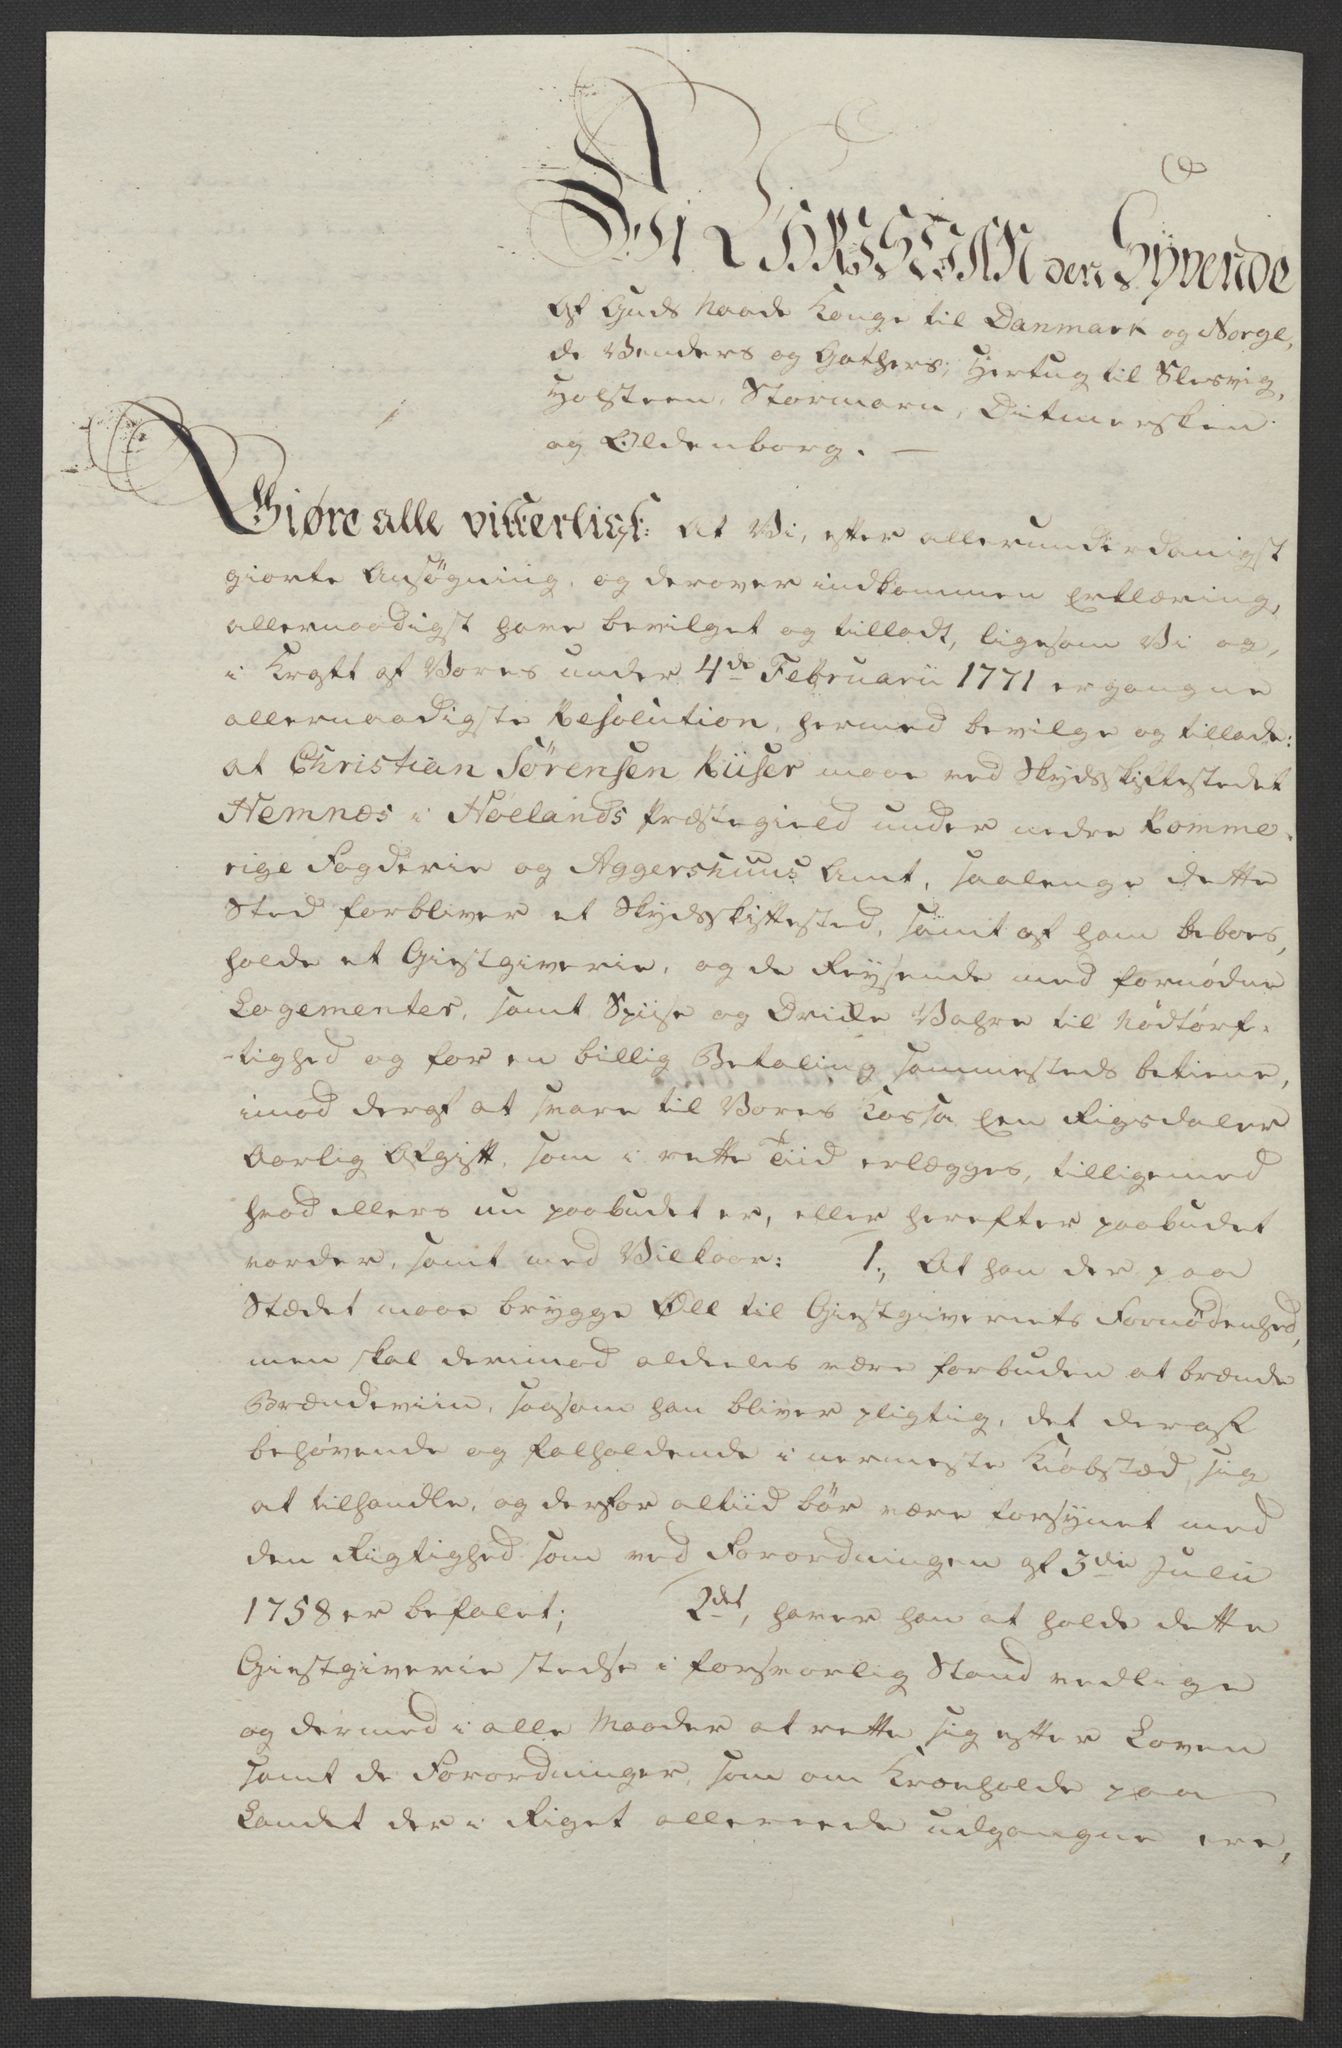 Vi CHRISTIAN den Syvende
af Guds Naade Konge til Danmark og Norge,
de Venders og Gothers; Hertug til Slesvig,
Holsteen, Stormarn, Ditmersken
og Oldenborg. —
Giøre alle vitterligt: At Vi, efter allerunderdanigst
giorte Ansøgning, og derover indkommen Erklæring,
allernaadigst have bevilget og tilladt, ligesom Vi og,
i Kraft af Vores under 4de Februarii 1771 ergangne
allernaadigste Resolution, hermed bevilge og tillade:
at Christian Sörensen Riiser maae ved Skydsskiftestedet
Hemnæs i Høelands Præstegield under nedre Romme-
rige Fogderie og Aggershuus Amt, saalenge dette
Sted forbliver et Skydsskiftested, samt af ham beboes,
holde et Giestgiverie, og de Reysende med fornødne
Logementer, samt Spiise og Drikke Vahre til Nödtörf-
-tighed og for en billig Betaling sammesteds betiene,
imod deraf at svare til Vores Kassa Een Rigsdaler
Aarlig Afgift, som i rette Tiid erlægges, tilligemed
hvad ellers nu paabudet er, eller herefter paabudet
vorder, samt med Vilkaar: 1., At han der paa
Stædet maae brygge Øll til Giestgiveriets Fornödenhed,
men skal derimod aldeeles være forbuden at brænde
Brændeviin, saasom han bliver pligtig, det deraf
behøvende og falholdende i nermeste Kiöbstæd sig
at tilhandle, og derfor altiid bör være forsynet med
den Rigtighed som ved Forordningen af 3die Julii
1758 er befalet; 2det, haver han at holde dette
Giestgiverie stedse i forsvarlig Stand vedlige
og dermed i alle Maader at rette sig efter Loven
samt de Forordninger, som om Kroeholde paa
Landet der i Riget allereede udgangne ere,